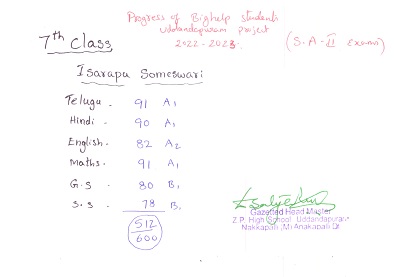 Progress of Bighelp students
Uddandapuram project
2022-2023.
(S.A-II Exams)
7th Class
Isarapu Someswari
Telugu - 91 A1
Hindi - 90 A1
English - 82 A2
Maths - 91 A1
G.S - 80 B1
S.S - 78 B1
512
600
Gazetted Head Master
Z.P. High School, Uddandapuram
Nakkapalli, Mt Anakapalli Dt